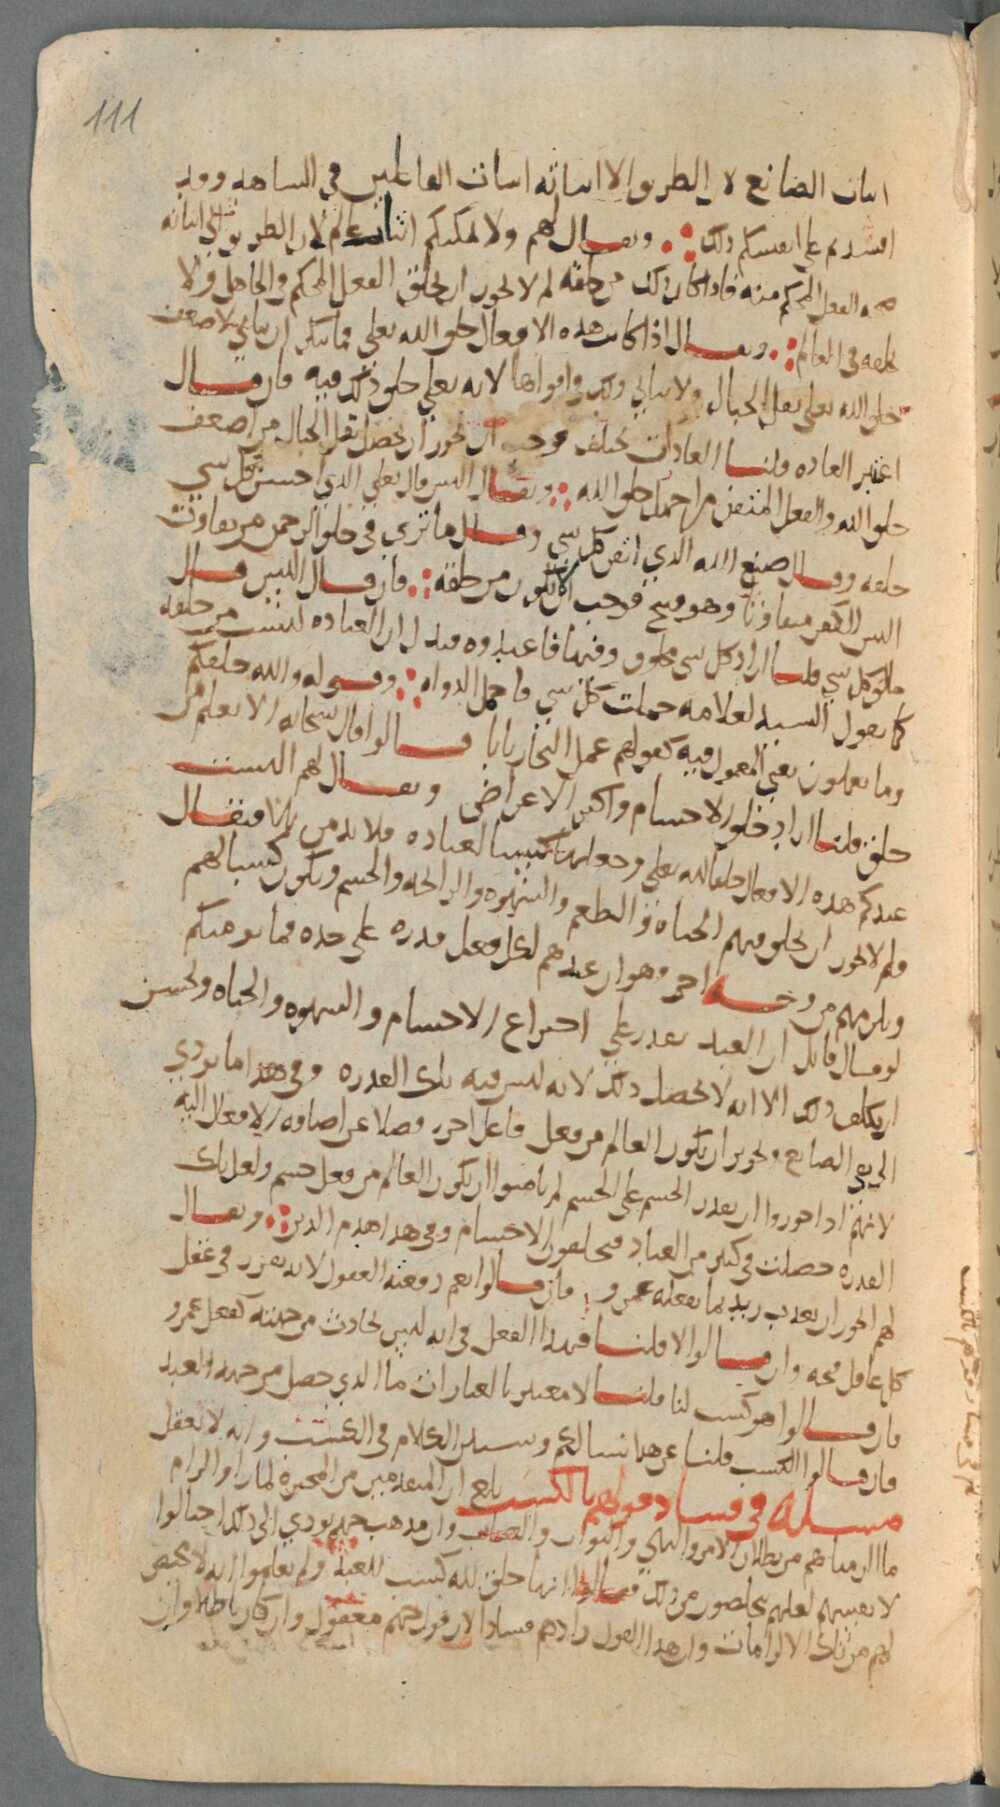 111
اثبات الصانع لان الطريق الا اثباته اثبات الفاعلين في الشاهد وقد
افسدتم على انفسكم ذلك ويقال لهم ولا يمكنكم اثبات عالم لان الطريق الى اثباته
صحه الفعل المحكم منه فاذا كان ذلك من خلقه لم لا يجوز ان يخلق الفعل المحكم في الجاهل ولا
يخلقه في العالم ويقال اذا كانت هذه الافعال خلق الله تعلى فما ينكر ان يتاتى لاضعف
خلق الله تعلى نقل الجبال ولا يتاتى ذلك في اقواها لانه تعلى خلق ذلك فيه فان قال
اعتبر العاده قلنا العادات تختلف فوجب ان يجوز ان يحصل نقل الجبال من اضعف
خلق الله والفعل المتقن من اجهل خلق الله ويقال اليس قال تعلى الذي احسن كل شي
خلقه وقال صنع الله الذي اتقن كل شي وقال ما ترى في خلق الرحمن من تفاوت
اليس الكفر متفاوتا وهو قبيح فوجب الا يكون من خلقه فان قال اليس قال
خالق كل شي قلنا اراد كل شي مخلوق وفيها فاعبدوه فيدل ان العباده ليست من خلقه
كما يقول السيد لغلامه حملت كل شي فاحمل الدواه وقوله والله خلقكم
وما تعملون يعني المعمول فيه كقولهم عمل النجار بابا قالوا قال سبحانه الا يعلم من
خلق قلنا اراد خلق الاجسام واكثر الاعراض ويقال لهم اليست
عندكم هذه الافعال خلقا لله تعلى وجعلها كسبا لعباده فلا بد من نعم فيقال
ولم لا يجوز ان يخلق فيهم الحياه والطعم والشهوه والرائحه والجسم ويكون كسبا لهم
ويلزمهم من وجه اخر وهو ان عندهم لكل فعل قدره على حده فما يومنكم
لو قال قائل ان العبد يقدر على اختراع الاجسام والشهوه والحياه ويحسن
ان يكلف ذلك الا انه لا يحصل ذلك لانه ليس فيه تلك القدره وفي هذا ما يودي
الى نفي الصانع وتجويز ان يكون العالم من فعل فاعل اخر فضلا عن اضافه الافعال اليه
لانهم اذا جوزوا ان يقدر الجسم على الجسم لم يامنوا ان يكون العالم من فعل جسم ولعل تلك
القدره حصلت في كثير من العباد فيخلقون الاجسام وفي هذا هدم الدين ويقال
لهم ايجوز ان يعذب زيد بما يفعله عمرو فان قالوا نعم دفعته العقول لانه تقرر في عقل
كل عاقل قبحه وان قالوا لا قلنا فهذا الفعل في انه ليس بحادث من جهته كفعل عمرو
فان قالوا هو كسب لنا قلنا لا معتبر بالعبارات ما الذي حصل من جهه العبد
فان قالوا الكسب قلنا عن هذا نسالكم وسنبين الكلام في الكسب وانه لا يعقل
مسله في فساد قولهم بالكسب بلغ ان المتقدمين من المجبره لما راوا الزام
ما الزمناهم من بطلان الامر والنهي والثواب والعقاب وان مذهب جهم يودي الى ذلك احتالوا
لانفسهم لعلهم يتخلصون من ذلك فقالوا انها خلق لله كسب للعبد ولم يعلموا انه لا مخلص
لهم من تلك الالزامات وان هذا القول زادهم فسادا لان قول جهم معقول وان كان باطلا وان